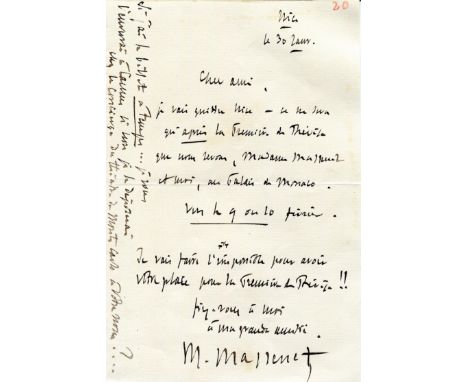 20
Nice
le 30 Janv.
Cher ami,
je vais quitter Nice – ce ne sera
qu'après la Première de Thérèse
que nous serons, Madame Massenet
et moi, au Palais de Monaco.
vers le 9 ou 10 février.
Je vais faire l'impossible pour avoir
votre place pour la Première de Thérèse !!
fiez-vous à moi
à ma grande amitié.
M. Massenet
Si j'ai le billet à temps... je vous
l'enverrai à Cannes si non je le déposerai
chez le Concierge du théâtre de Monte Carlo à votre nom....
?